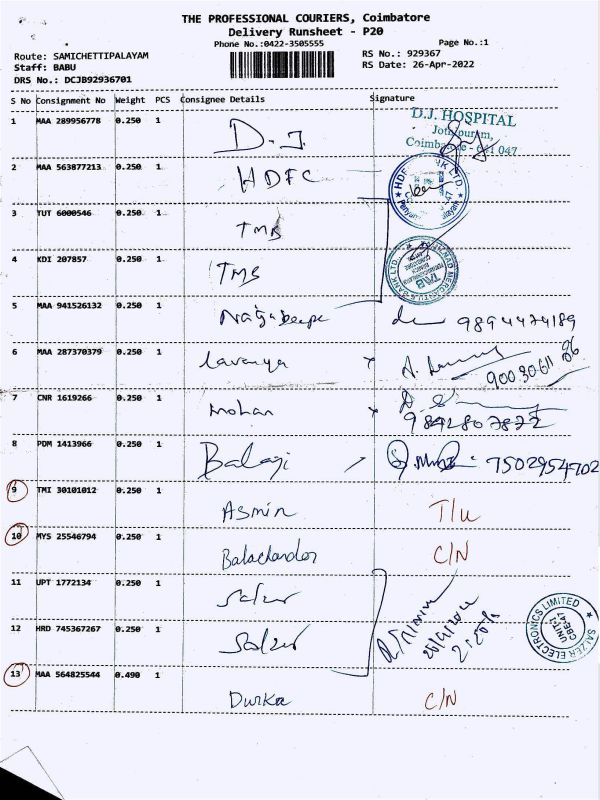 THE PROFESSIONAL COURIERS, Coimbatore
Delivery Runsheet - P20
Phone No.:0422-3505555
Page No.:1
Route: SAMICHETTIPALAYAM
Staff: BABU
DRS No.: DCJB92936701
RS No.: 929367
RS Date: 26-Apr-2022
S No Consignment No Weight PCS Consignee Details Signature
1 MAA 289956778 0.250 1 D.J.
D.J. HOSPITAL
Jothipuram,
Coimbatore - 641 047
2 MAA 563877213 0.250 1 HDFC
3 TUT 6000546 0.250 1 TMB
4 KDI 207857 0.250 1 TMB
TAB
5 MAA 941526132 0.250 1 9894474189
6 MAA 287370379 0.250 1 Lavanya
7 CNR 1619266 0.250 1 Mohan 9842807872
8 PDM 1413966 0.250 1 Balaji 7502954702
9 TMI 30101012 0.250 1 Asmin
10 MYS 25546794 0.250 1 Balachander C/N
11 UPT 1772134 0.250 1 Salzer
12 HRD 745367267 0.250 1 Salzer
SALZER ELECTRONICS LIMITED
UNIT-1
CBE-47
13 MAA 564825544 0.490 1 Durka C/N